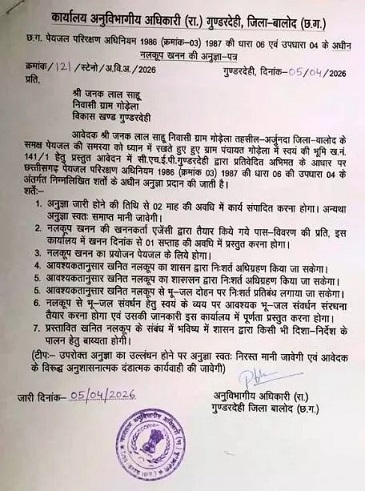 कार्यालय अनुविभागीय अधिकारी (रा.) गुण्डरदेही, जिला-बालोद (छ.ग.)
छ.ग. पेयजल परिरक्षण अधिनियम 1986 (क्रमांक-03) 1987 की धारा 06 एवं उपधारा 04 के अधीन
नलकूप खनन की अनुज्ञा-पत्र
क्रमांक/121/स्टेनो/अ.वि.अ./2026 गुण्डरदेही, दिनांक-05/04/2026
प्रति,
श्री जनक लाल साहू
निवासी ग्राम गोड़ेला
विकास खण्ड गुण्डरदेही
आवेदक श्री जनक लाल साहू निवासी ग्राम गोड़ेला तहसील-अर्जुन्दा जिला-बालोद के
समक्ष पेयजल की समस्या को ध्यान में रखते हुए हुए ग्राम पंचायत गोड़ेला में स्वयं की भूमि ख.नं.
141/1 हेतु प्रस्तुत आवेदन में सी.एच.ई.पी.गुण्डरदेही द्वारा प्रतिवेदित अभिमत के आधार पर
छत्तीसगढ़ पेयजल परिरक्षण अधिनियम 1986 (क्रमांक 03) 1987 की धारा 06 की उपधारा 04 के
अंतर्गत निम्नलिखित शर्तो के अधीन अनुज्ञा प्रदान की जाती है।
शर्ते:-
1. अनुज्ञा जारी होने की तिथि से 02 माह की अवधि में कार्य संपादित करना होगा। अन्यथा
अनुज्ञा स्वतः समाप्त मानी जावेगी।
2. नलकूप खनन की खननकर्ता एजेंसी द्वारा तैयार किये गये पास-विवरण की प्रति, इस
कार्यालय में खनन दिनांक से 01 सप्ताह की अवधि में प्रस्तुत करना होगा।
3. नलकूप खनन का प्रयोजन पेयजल के लिये होगा।
4. आवश्यकतानुसार खनित नलकूप का शासन द्वारा निःशर्त अधिग्रहण किया जा सकेगा।
4. आवश्यकतानुसार खनित नलकूप का शासन द्वारा निःशर्त अधिग्रहण किया जा सकेगा।
5. आवश्यकतानुसार खनित नलकूप से भू-जल दोहन पर निःशर्त प्रतिबंध लगाया जा सकेगा।
6. नलकूप से भू-जल संवर्धन हेतु स्वयं के व्यय पर आवश्यक भू-जल संवर्धन संरचना
तैयार करना होगा एवं उसकी जानकारी इस कार्यालय में पूर्णता प्रस्तुत करना होगा।
7. प्रस्तावित खनित नलकूप के संबंध में भविष्य में शासन द्वारा किसी भी दिशा-निर्देश के
पालन हेतु बाध्यता होगी।
(टीपः- उपरोक्त अनुज्ञा का उल्लंघन होने पर अनुज्ञा स्वतः निरस्त मानी जावेगी एवं आवेदक
के विरूद्ध अनुशासनात्मक दंडात्मक कार्यवाही की जावेगी)
जारी दिनांक- 05/04/2026
अनुविभागीय अधिकारी (रा.)
गुण्डरदेही जिला बालोद (छ.ग.)